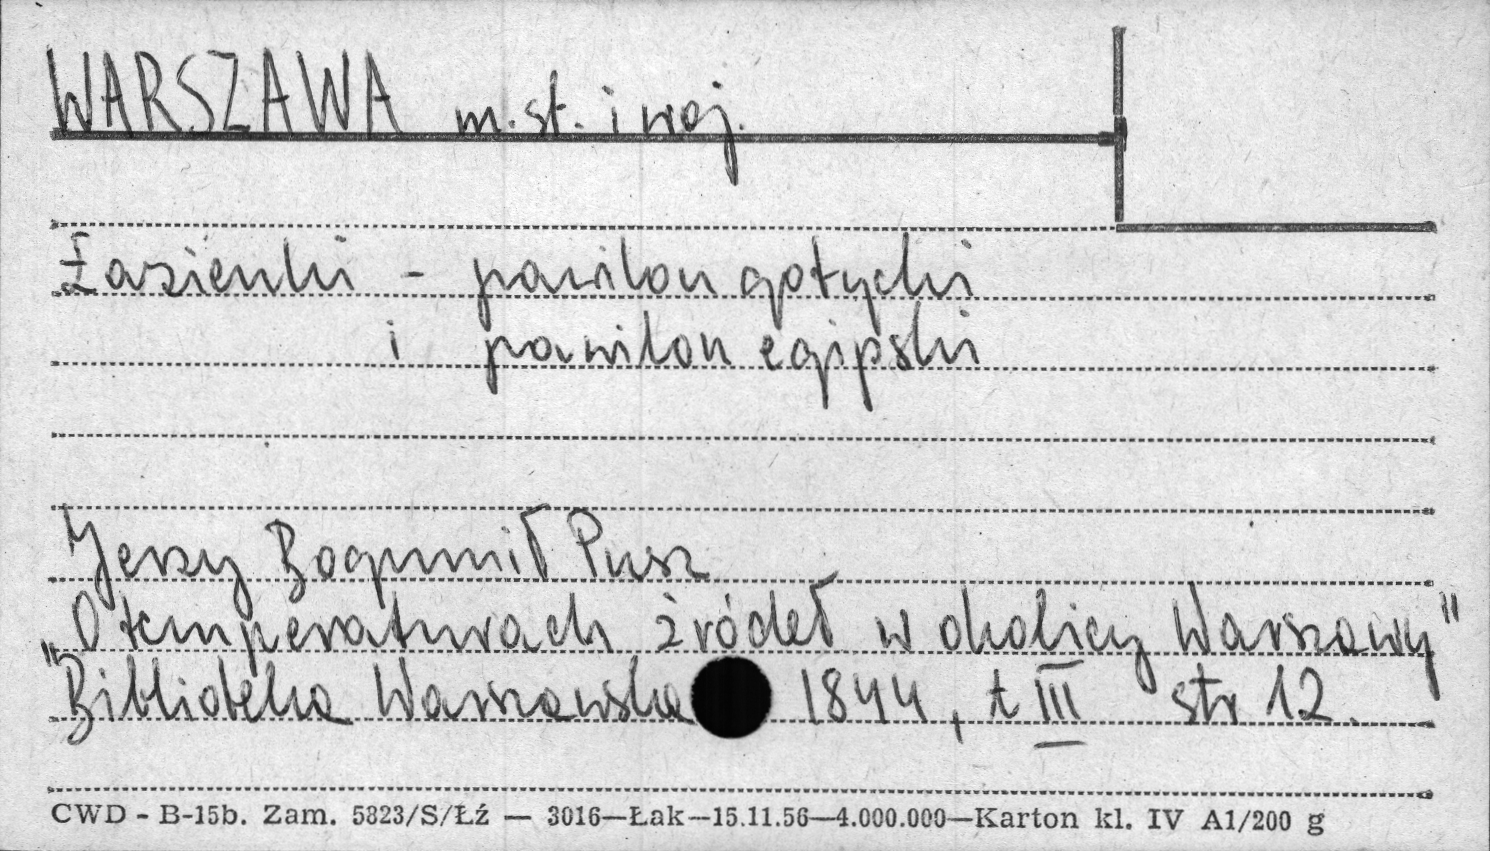 WARSZAWA m. st. i woj.
Łazienki - pawilon gotycki
i pawilon egipski
Jerzy Bogumił Pusz
"O temperaturach źródeł w okolicy Warszawy"
Biblioteka Warszawska 1844, t III str 12.
CWD - B-15b. Zam. 5823/S/Łź — 3016—Łak—15.11.56—4.000.000—Karton kl. IV A1/200 g